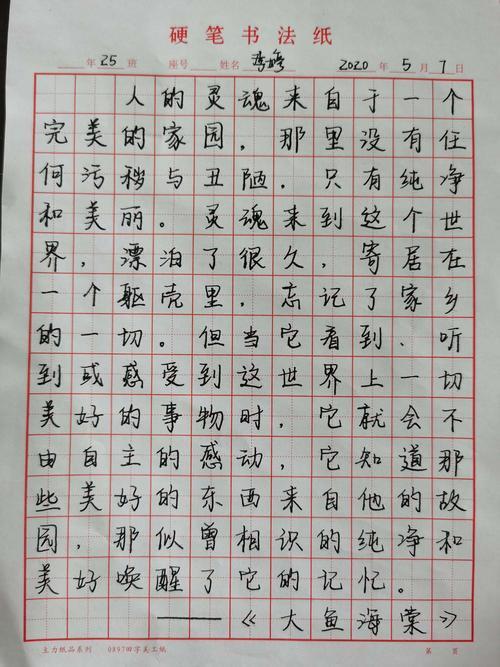 硬笔书法纸
年 25 班 座号 姓名 2020 年 5 月 7 日
人的灵魂来自于一个
完美的家园，那里没有任
何污秽与丑陋，只有纯净
和美丽。灵魂来到这个世
界，漂泊了很久，寄居在
一个躯壳里，忘记了家乡
的一切。但当它看到、听
到或感受到这世界上一切
美好的事物时，它就会不
由自主的感动，它知道那
些美好的东西来自他的故
园，那似曾相识的纯净和
美好唤醒了它的记忆。
——《大鱼海棠》
主力纸品系列 0897田字美工纸 第 页